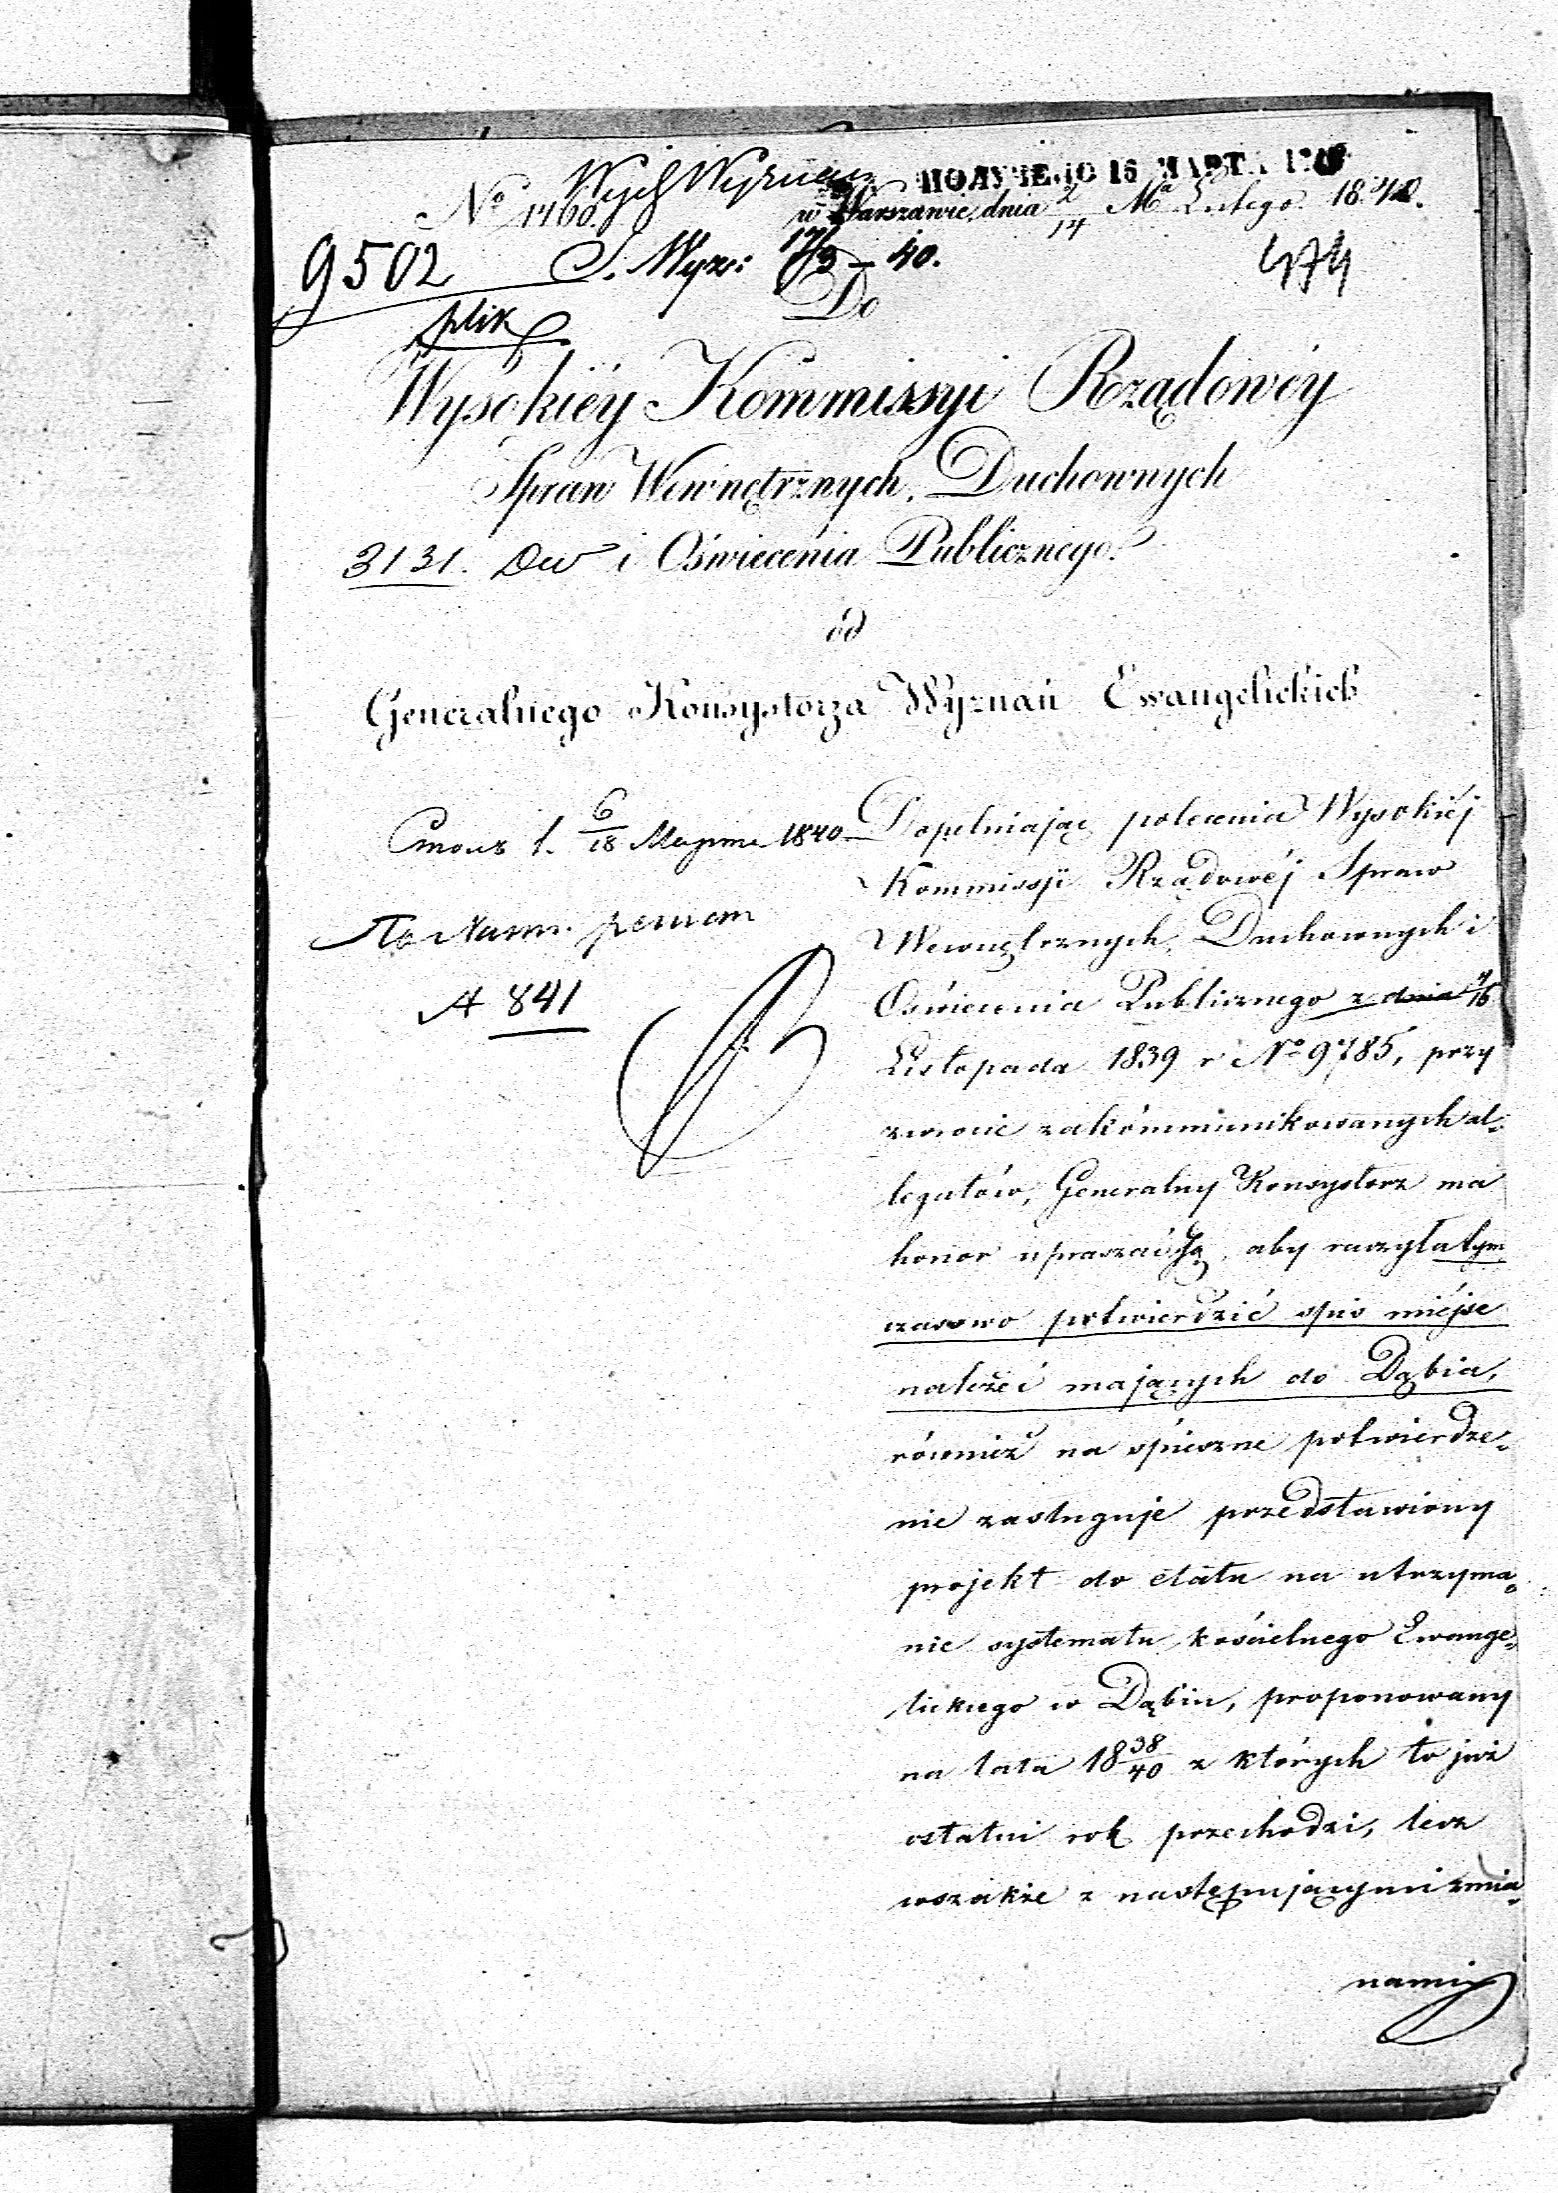 Wydz Wyznań
ПОЛУЧЕНО 16 МАРТА 1840
No 1160. w Warszawie, dnia 2/14 Mca Lutego 1840.
9502 S. Wyz: 17/3 – 40. 474
plik
Do
Wysokiéy Kommissyi Rządowéy
Spraw Wewnętrznych, Duchownych
3131. i Oświecenia Publicznego.
od
Generalnego Konsystorza Wyznań Ewangelickich
6/18 Марта 1840
A 841
Dopełniając polecenia Wysokiéj
Kommissji Rządowéj Spraw
Wewnętrznych, Duchownych i
Oświecenia Publicznego z dnia 4/16
Listopada 1839 r No 9785, przy
zwrocie zakómmunikowanych al-
legatów, Generalny Konsystorz ma
honor upraszać Ją, aby raczyła tym
czasowo potwierdzić spis miéjsc
należeć mających do Dąbia,
również na spieszne potwierdze-
nie zasługuje przedstawiony
projekt do etatu na utrzyma-
nie systematu kościelnego Ewange-
lickiego w Dąbiu, proponowany
na lata 18 38/40 z których to już
ostatni rok przechodzi, lecz
wszakże z następującymi zmia-
nami